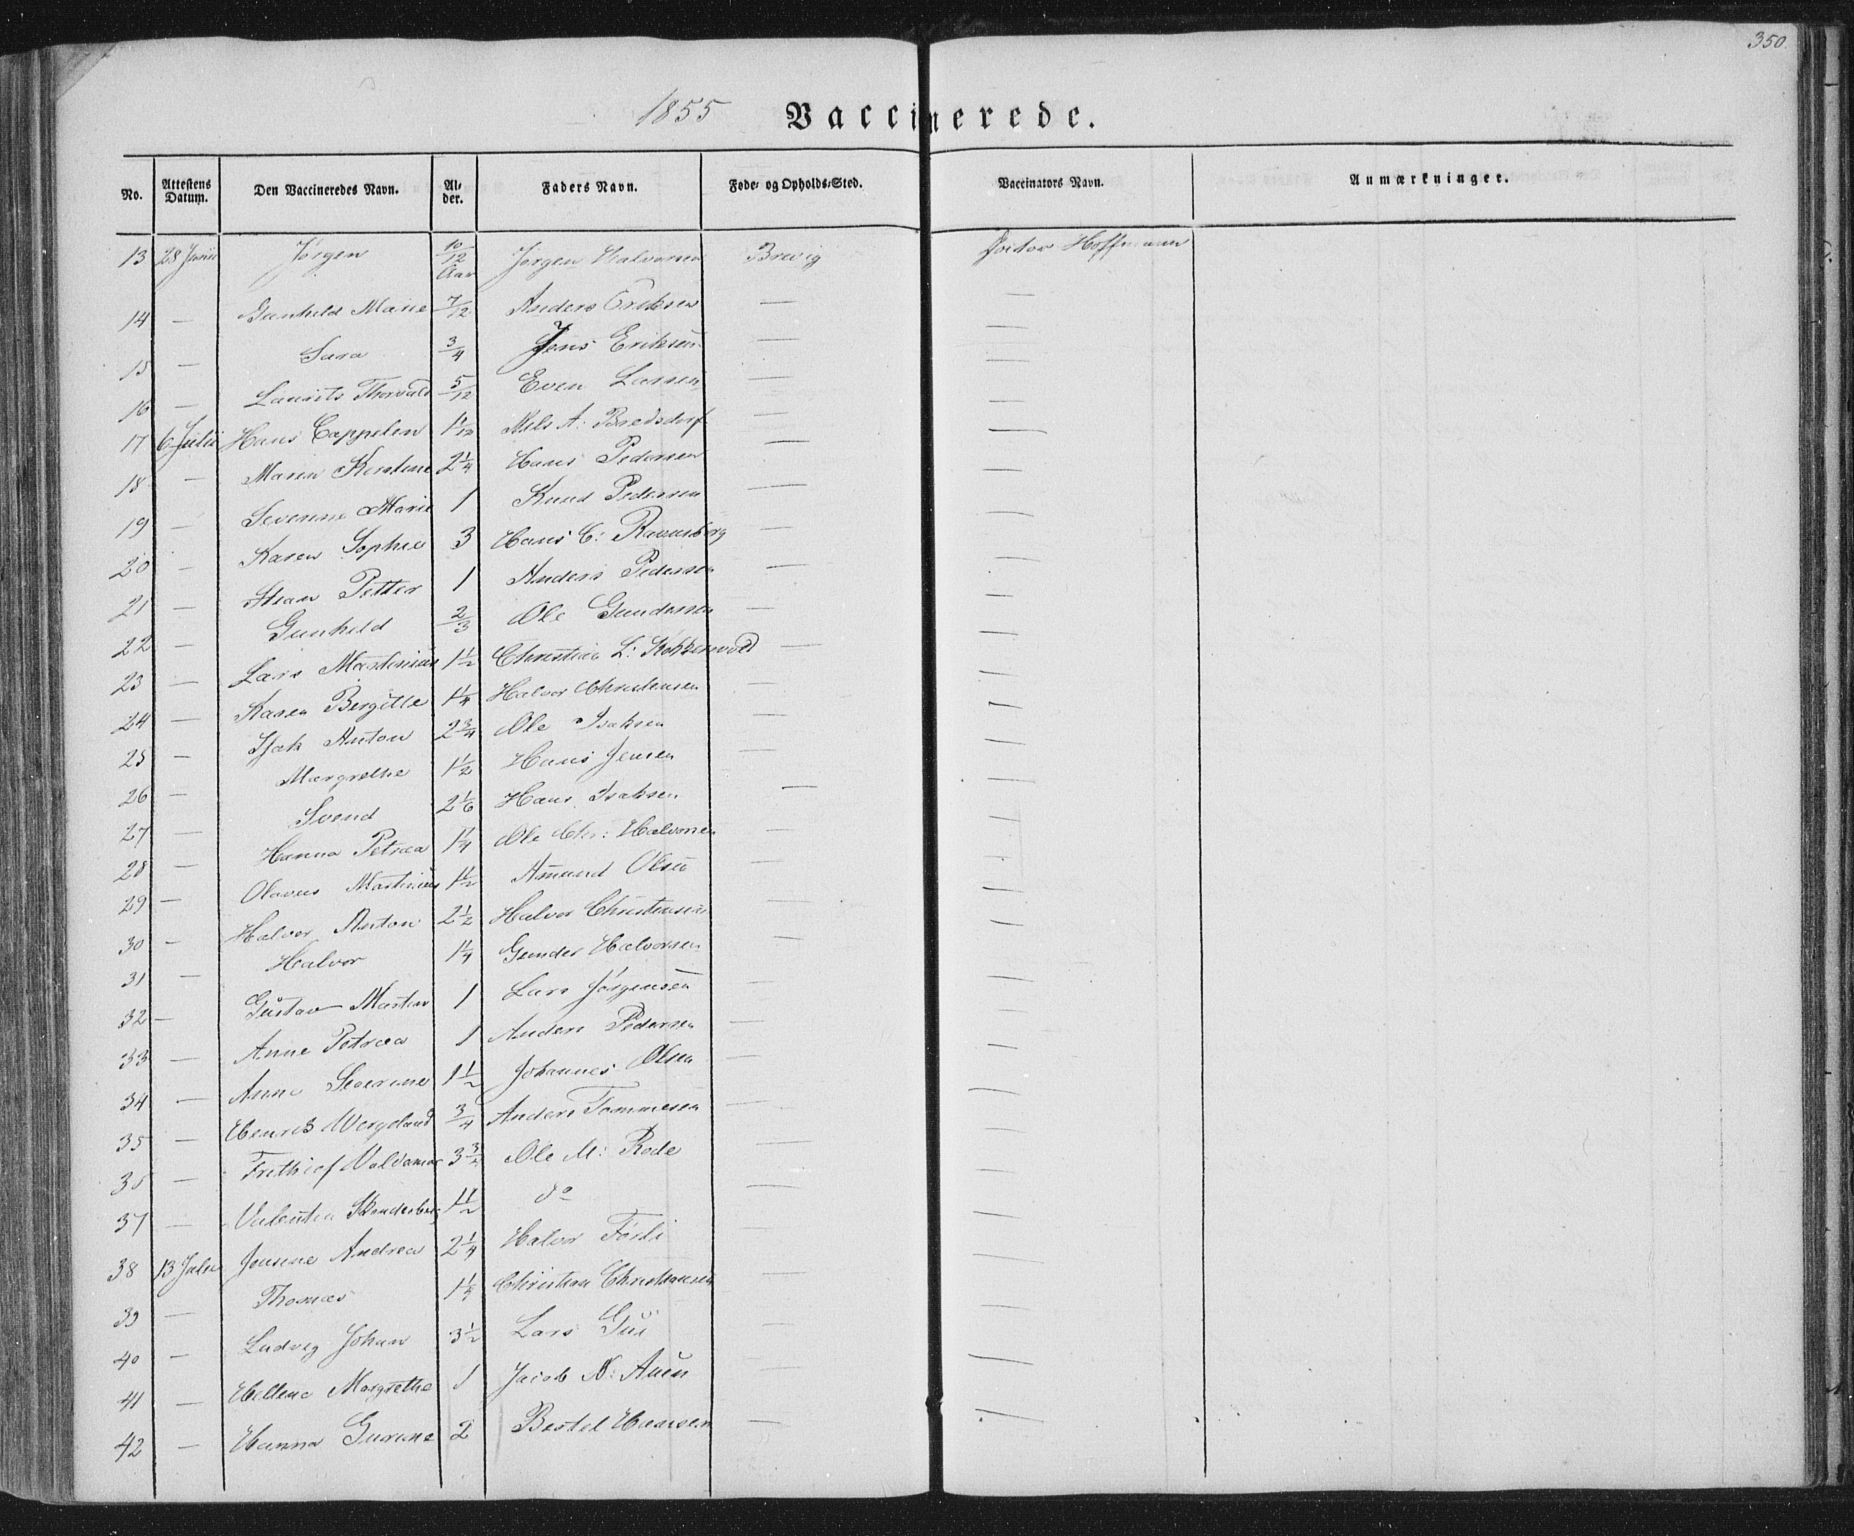 350.
1855 Vaccinerede.
No. Attestens Datum. Den Vaccineredes Navn. Al-der. Faders Navn. Føde- og Opholds-Sted. Vaccinators Navn. Anmærkninger.
13 28 Junii Jørgen 10/12 Aar Jørgen Halvorsen Brevig Doctor Hoffmann
14 — Gunhild Marie 7/12 Anders Eriksen — —
15 — Sara 3/4 Jens Eriksen — —
16 — Laurits Thorvald 5/12 Even Larsen — —
17 6 Julii Hans Cappelen Nils A: Bredsdorf — —
18 — Maren Kirstine 2 1/4 Hans Pedersen — —
19 — Severine Marie 1 Knud Pedersen — —
20 — Karen Sophie 3 Hans C: Ravnsborg — —
21 — Petter 1 Anders Pedersen — —
22 — Gunhild 2/3 Ole Gundersen — —
23 — Lars Martinius 1 1/2 Christian L: — —
24 — Karen Bergitte 1 1/4 Halvor Christensen — —
25 — Isak Anton 2 3/4 Ole Isaksen — —
26 — Margrethe 1 1/2 Hans Jensen — —
27 — Svend 2 1/6 Hans Isaksen — —
28 — Hanna Petrea 1 1/4 Ole Chr: Halvorsen — —
29 — Olavus Martinius 1 1/2 Amund Olsen — —
30 — Halvor Anton 2 1/2 Halvor Christensen — —
31 — Halvor 1 1/4 Gunder Halvorsen — —
32 — Gustav Martin 1 Lars Jørgensen — —
33 — Anne Petrea 1 Anders Pedersen — —
34 — Anne Severine 1 1/2 Johannes Olsen — —
35 — Henrik Wergeland 3/4 Anders Tommesen — —
36 — Frithiof Valdemar 3 3/4 Ole M: Rode — —
37 — Valentin 1 1/2 do — —
38 13 Julii Josine Andrea 2 1/4 Halvor — —
39 — Thomas 1 1/4 Christian Christiansen — —
40 — Ludvig Johan 3 1/2 Lars — —
41 — Hellene Margrethe 1 Jacob N: — —
42 — Hanna Gurine 2 Bertel Hansen — —